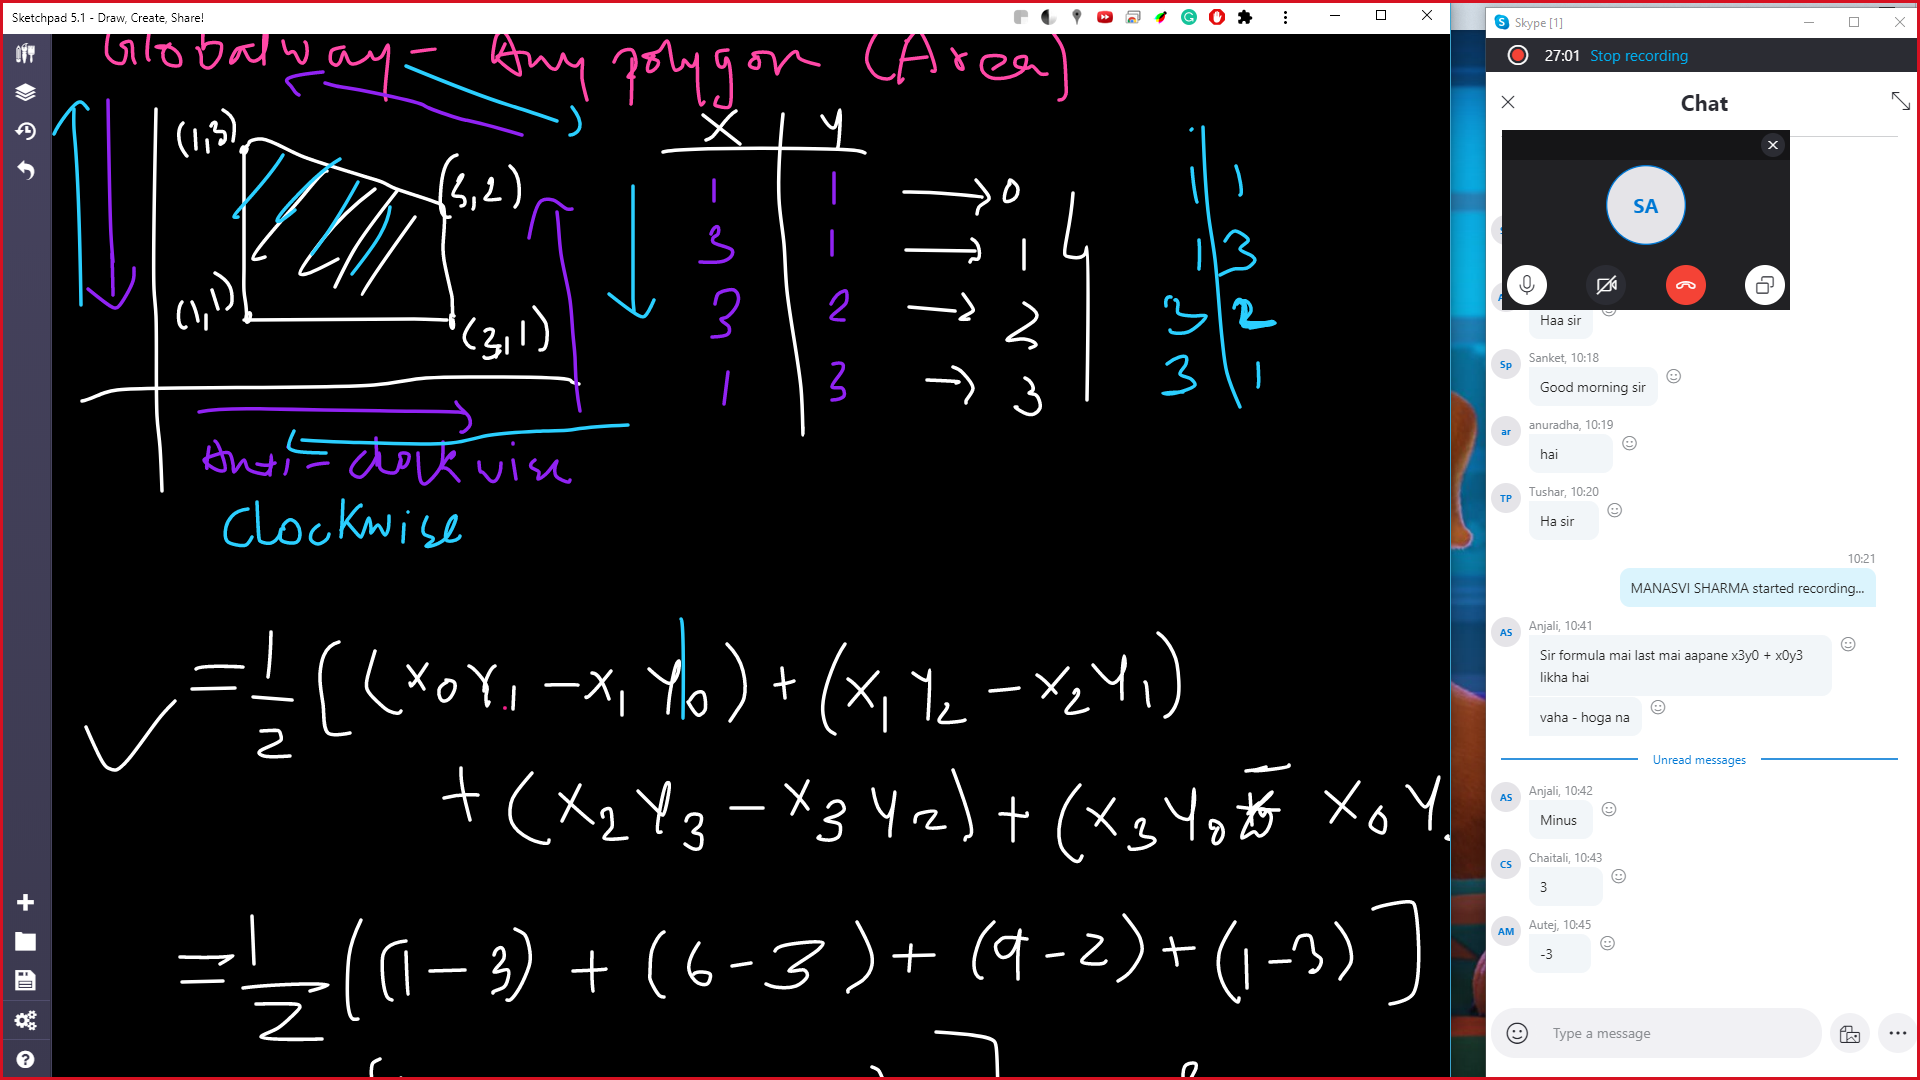 Sketchpad 5.1 - Draw, Create, Share!
Globalway - Any polygon (Area)
(1,3)
(3,2)
(1,1)
(3,1)
Anti-clockwise
Clockwise
X Y
1 1 → 0
3 1 → 1
3 2 → 2
1 3 → 3
1 1
1 3
3 2
3 1
= 1/2 [(x0Y1 - x1 Y0) + (x1 Y2 - x2 Y1)
+ (x2 Y3 - x3 Y2) + (x3 Y0 - x0 Y
= 1/2 [(1-3) + (6-3) + (9-2) + (1-3)]
Skype [1]
27:01 Stop recording
Chat
SA
Haa sir
Sp
Sanket, 10:18
Good morning sir
ar
anuradha, 10:19
hai
TP
Tushar, 10:20
Ha sir
10:21
MANASVI SHARMA started recording...
AS
Anjali, 10:41
Sir formula mai last mai aapane x3y0 + x0y3
likha hai
vaha - hoga na
Unread messages
AS
Anjali, 10:42
Minus
CS
Chaitali, 10:43
3
AM
Autej, 10:45
-3
Type a message